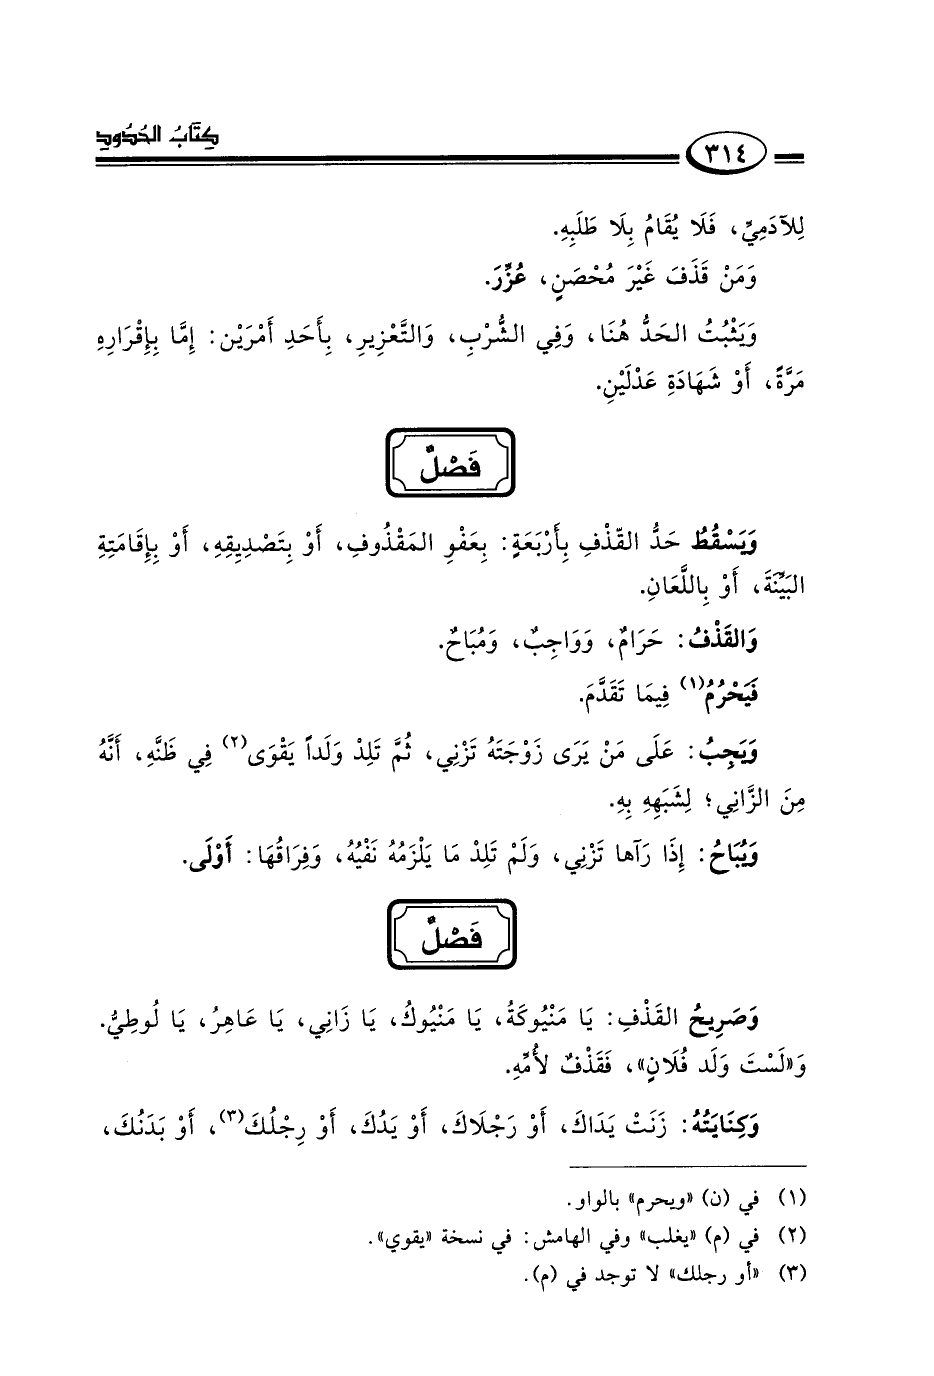 كِتَابُ الحُدُودِ
٣١٤
لِلآدَمِيِّ، فَلَا يُقَامُ بِلَا طَلَبِهِ.
وَمَنْ قَذَفَ غَيْرَ مُحْصَنٍ، عُزِّرَ.
وَيَثْبُتُ الحَدُّ هُنَا، وَفِي الشُّرْبِ، وَالتَّعْزِيرِ، بِأَحَدِ أَمْرَيْن: إِمَّا بِإِقْرَارِهِ
مَرَّةً، أَوْ شَهَادَةِ عَدْلَيْنِ.
فَصْلٌ
وَيَسْقُطُ حَدُّ القَذْفِ بِأَرْبَعَةٍ: بِعَفْوِ المَقْذُوفِ، أَوْ بِتَصْدِيقِهِ، أَوْ بِإِقَامَتِةِ
البَيِّنَةَ، أَوْ بِاللَّعَانِ.
وَالقَذْفُ: حَرَامٌ، وَوَاجِبٌ، وَمُبَاحٌ.
فَيَحْرُمُ(١) فِيمَا تَقَدَّمَ.
وَيَجِبُ: عَلَى مَنْ يَرَى زَوْجَتَهُ تَزْنِي، ثُمَّ تَلِدْ وَلَداً يَقْوَى(٢) فِي ظَنِّهِ، أَنَّهُ
مِنَ الزَّانِي؛ لِشَبَهِهِ بِهِ.
وَيُبَاحُ: إِذَا رَآها تَزْنِي، وَلَمْ تَلِدْ مَا يَلْزَمُهُ نَفْيُهُ، وَفِرَاقُهَا: أَوْلَى.
فَصْلٌ
وَصَرِيحُ القَذْفِ: يَا مَنْيُوكَةُ، يَا مَنْيُوكُ، يَا زَانِي، يَا عَاهِرُ، يَا لُوطِيُّ.
وَ«لَسْتَ وَلَد فُلَانٍ»، فَقَذْفٌ لأُمِّهِ.
وَكِنَايَتُهُ: زَنَتْ يَدَاكَ، أَوْ رَجْلَاكَ، أَوْ يَدُكَ، أَوْ رِجْلُكَ(٣)، أَوْ بَدَنُكَ،
(١) في (ن) «ويحرم» بالواو.
(٢) في (م) «يغلب» وفي الهامش: في نسخة «يقوي».
(٣) «أو رجلك» لا توجد في (م).